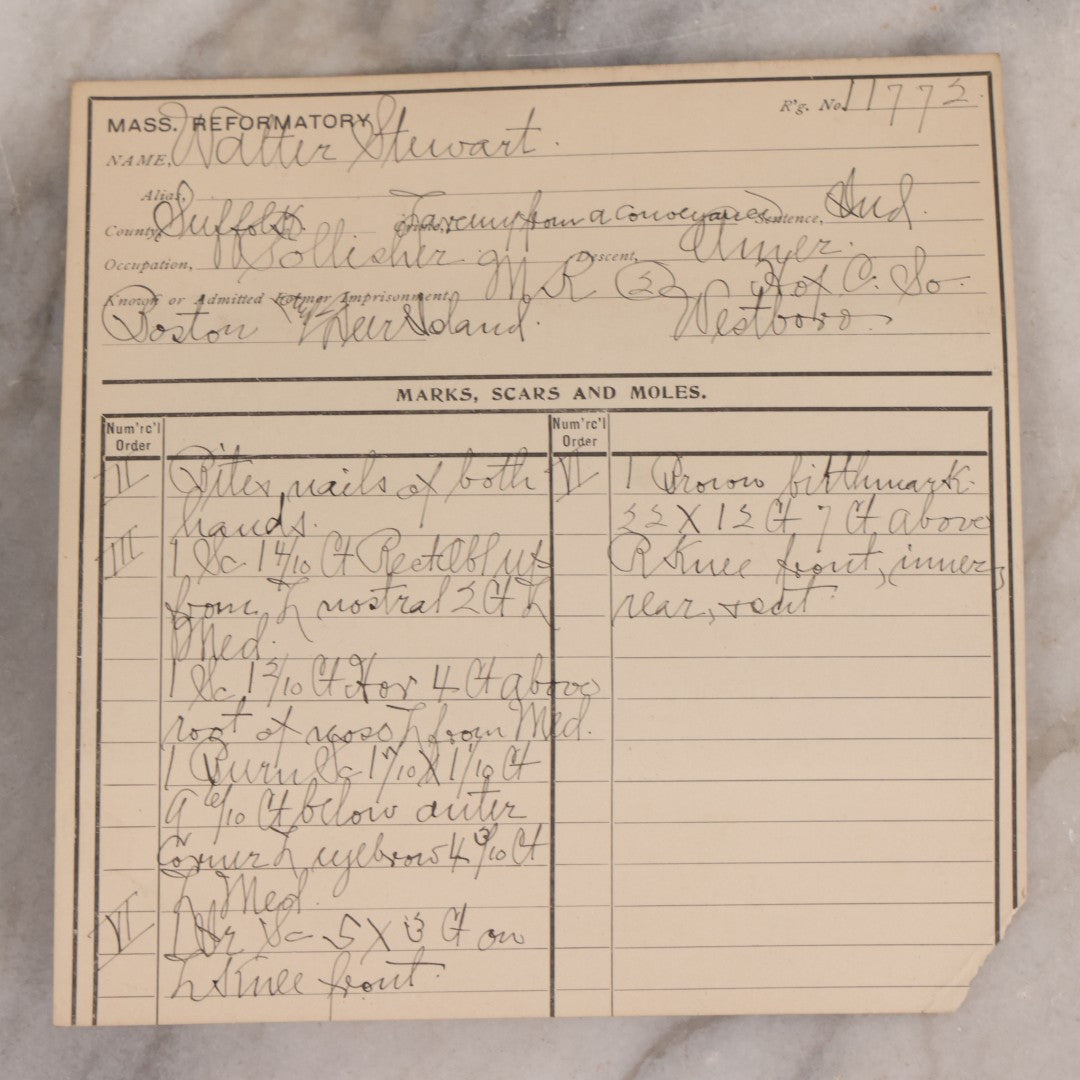 R'g. No. 11772.
MASS. REFORMATORY
NAME, Walter Stewart.
Alias,
County, Suffolk Crime, Larceny from a conveyance Sentence, Ind.
Occupation, Pollisher Descent, Amer.
Known or Admitted Former Imprisonment, M R (2) Hof C. So.
Boston Deer Island. Westboro.
MARKS, SCARS AND MOLES.
Num'rc'l Order
Num'rc'l Order
II Bites nails of both
hands.
III 1 Sc 1 4/10 Ct Rect Obl up
from L nostral 2 Ct L
Med.
1 Sc 1 2/10 Ct Hor 4 Ct above
root of nose L from Med.
1 Burn Sc 1 7/10 X 1 1/10 Ct
9 6/10 Ct below outer
Corner L eyebrow 4 3/10 Ct
L Med.
VI 1 Irr Sc 5 X 3 Ct on
L Knee front.
VI 1 Brown birthmark
22 X 12 Ct 7 Ct above
R Knee front, inner,
rear, + out